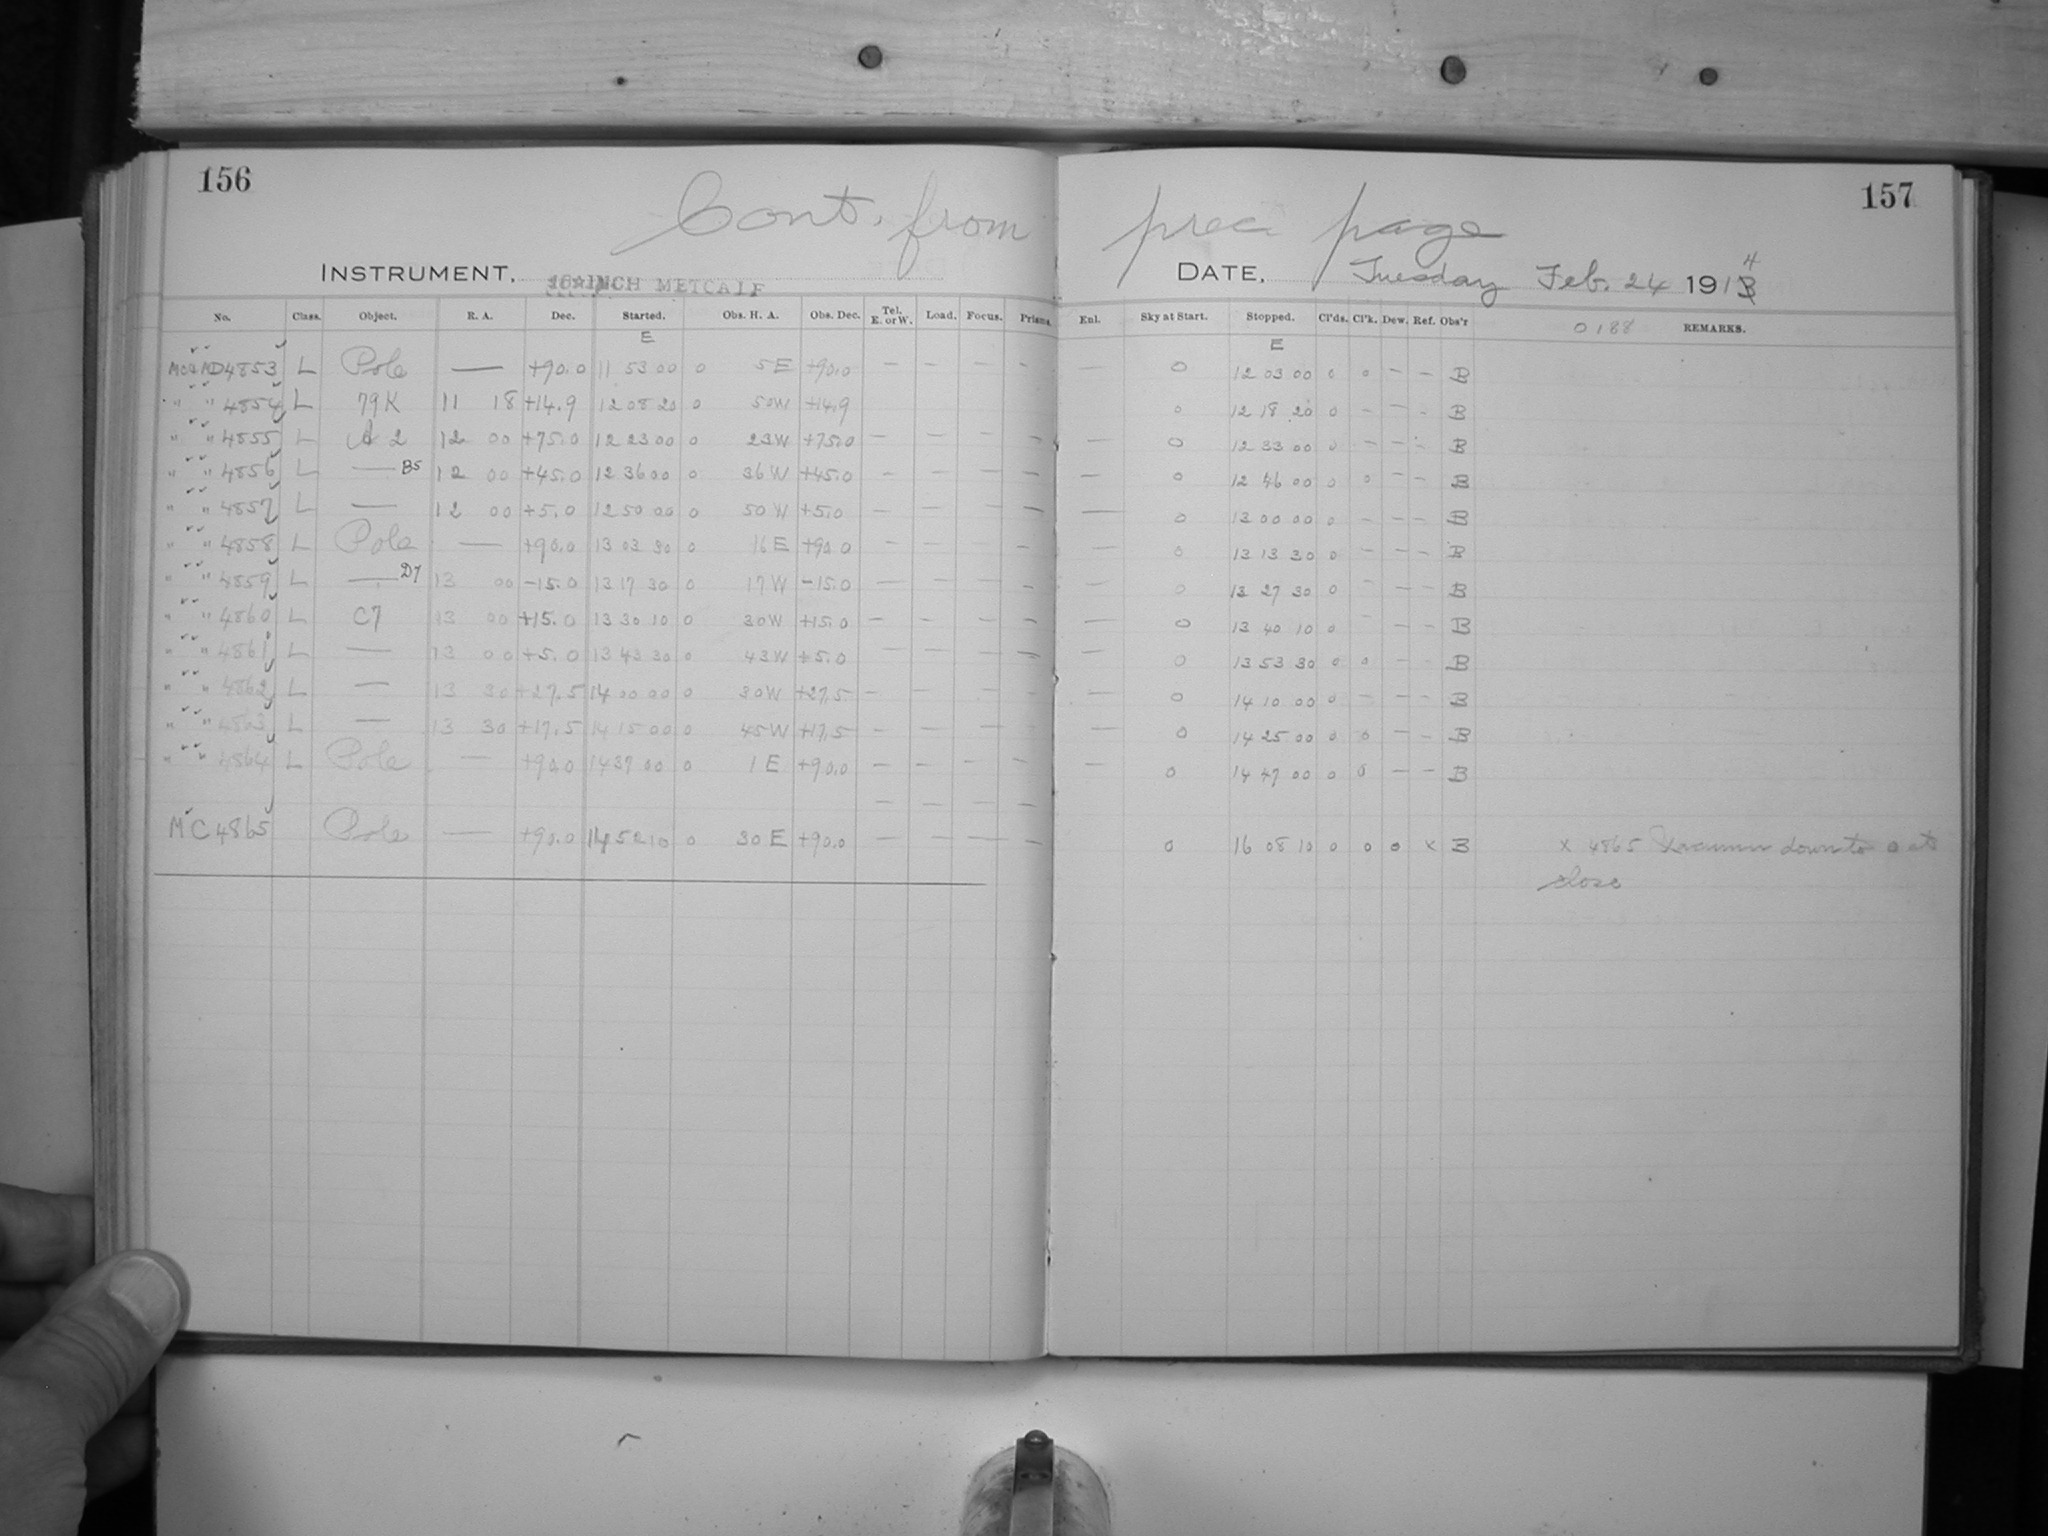 156
157
Cont. from prec page
INSTRUMENT, INCH METCALF
DATE, Tuesday Feb. 24 1913 4
No. Class. Object. R. A. Dec. Started. Obs. H. A. Obs. Dec. Tel. E. or W. Load. Focus. Prisms. Enl. Sky at Start. Stopped. Cl'ds. Cl'k. Dew. Ref. Obs'r 0188 REMARKS.
E E
4853 L Pole — +90.0 11 53 00 0 5 E +90.0 — — — — — 0 12 03 00 0 0 – – B
" " 4854 L 79K 11 18 +14.9 12 08 20 0 50W +14.9 0 12 18 20 0 – – – B
" " 4855 L A 2 12 00 +75.0 12 23 00 0 23W +75.0 — — — — — 0 12 33 00 0 – – – B
" " 4856 L — B5 12 00 +45.0 12 36 00 0 36W +45.0 — — — — — 0 12 46 00 0 0 – – B
" " 4857 L — 12 00 +5.0 12 50 00 0 50W +5.0 — — — — — 0 13 00 00 0 – – – B
" " 4858 L Pole — +90.0 13 03 30 0 16 E +90.0 — — — — — 0 13 13 30 0 – – – B
" " 4859 L — D7 13 00 -15.0 13 17 30 0 17W -15.0 — — — — — 0 13 27 30 0 – – – B
" " 4860 L C7 13 00 +15.0 13 30 10 0 30W +15.0 — — — — — 0 13 40 10 0 – – – B
" " 4861 L — 13 00 +5.0 13 43 30 0 43W +5.0 — — — — — 0 13 53 30 0 0 – – B
" " 4862 L — 13 30 +27.5 14 00 00 0 30W +27.5 — — — — — 0 14 10 00 0 – – – B
" " 4863 L — 13 30 +17.5 14 15 00 0 45W +17.5 — — — — — 0 14 25 00 0 0 – – B
" " 4864 L Pole — +90.0 14 37 00 0 1 E +90.0 — — — — — 0 14 47 00 0 0 – – B
— — — —
MC 4865 Pole — +90.0 14 52 10 0 30 E +90.0 — — — — 0 16 08 10 0 0 0 x B x 4865 down to 0 at
close